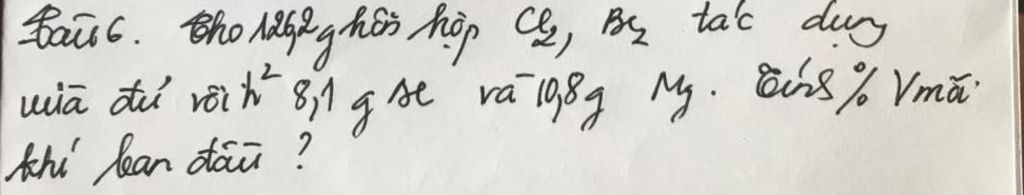 Bài 6. Cho 126,2g hỗn hợp Cl2, Br2 tác dụng
vừa đủ với h² 8,1 g Al và 10,8g Mg. Tính % V mỗi
khí ban đầu ?